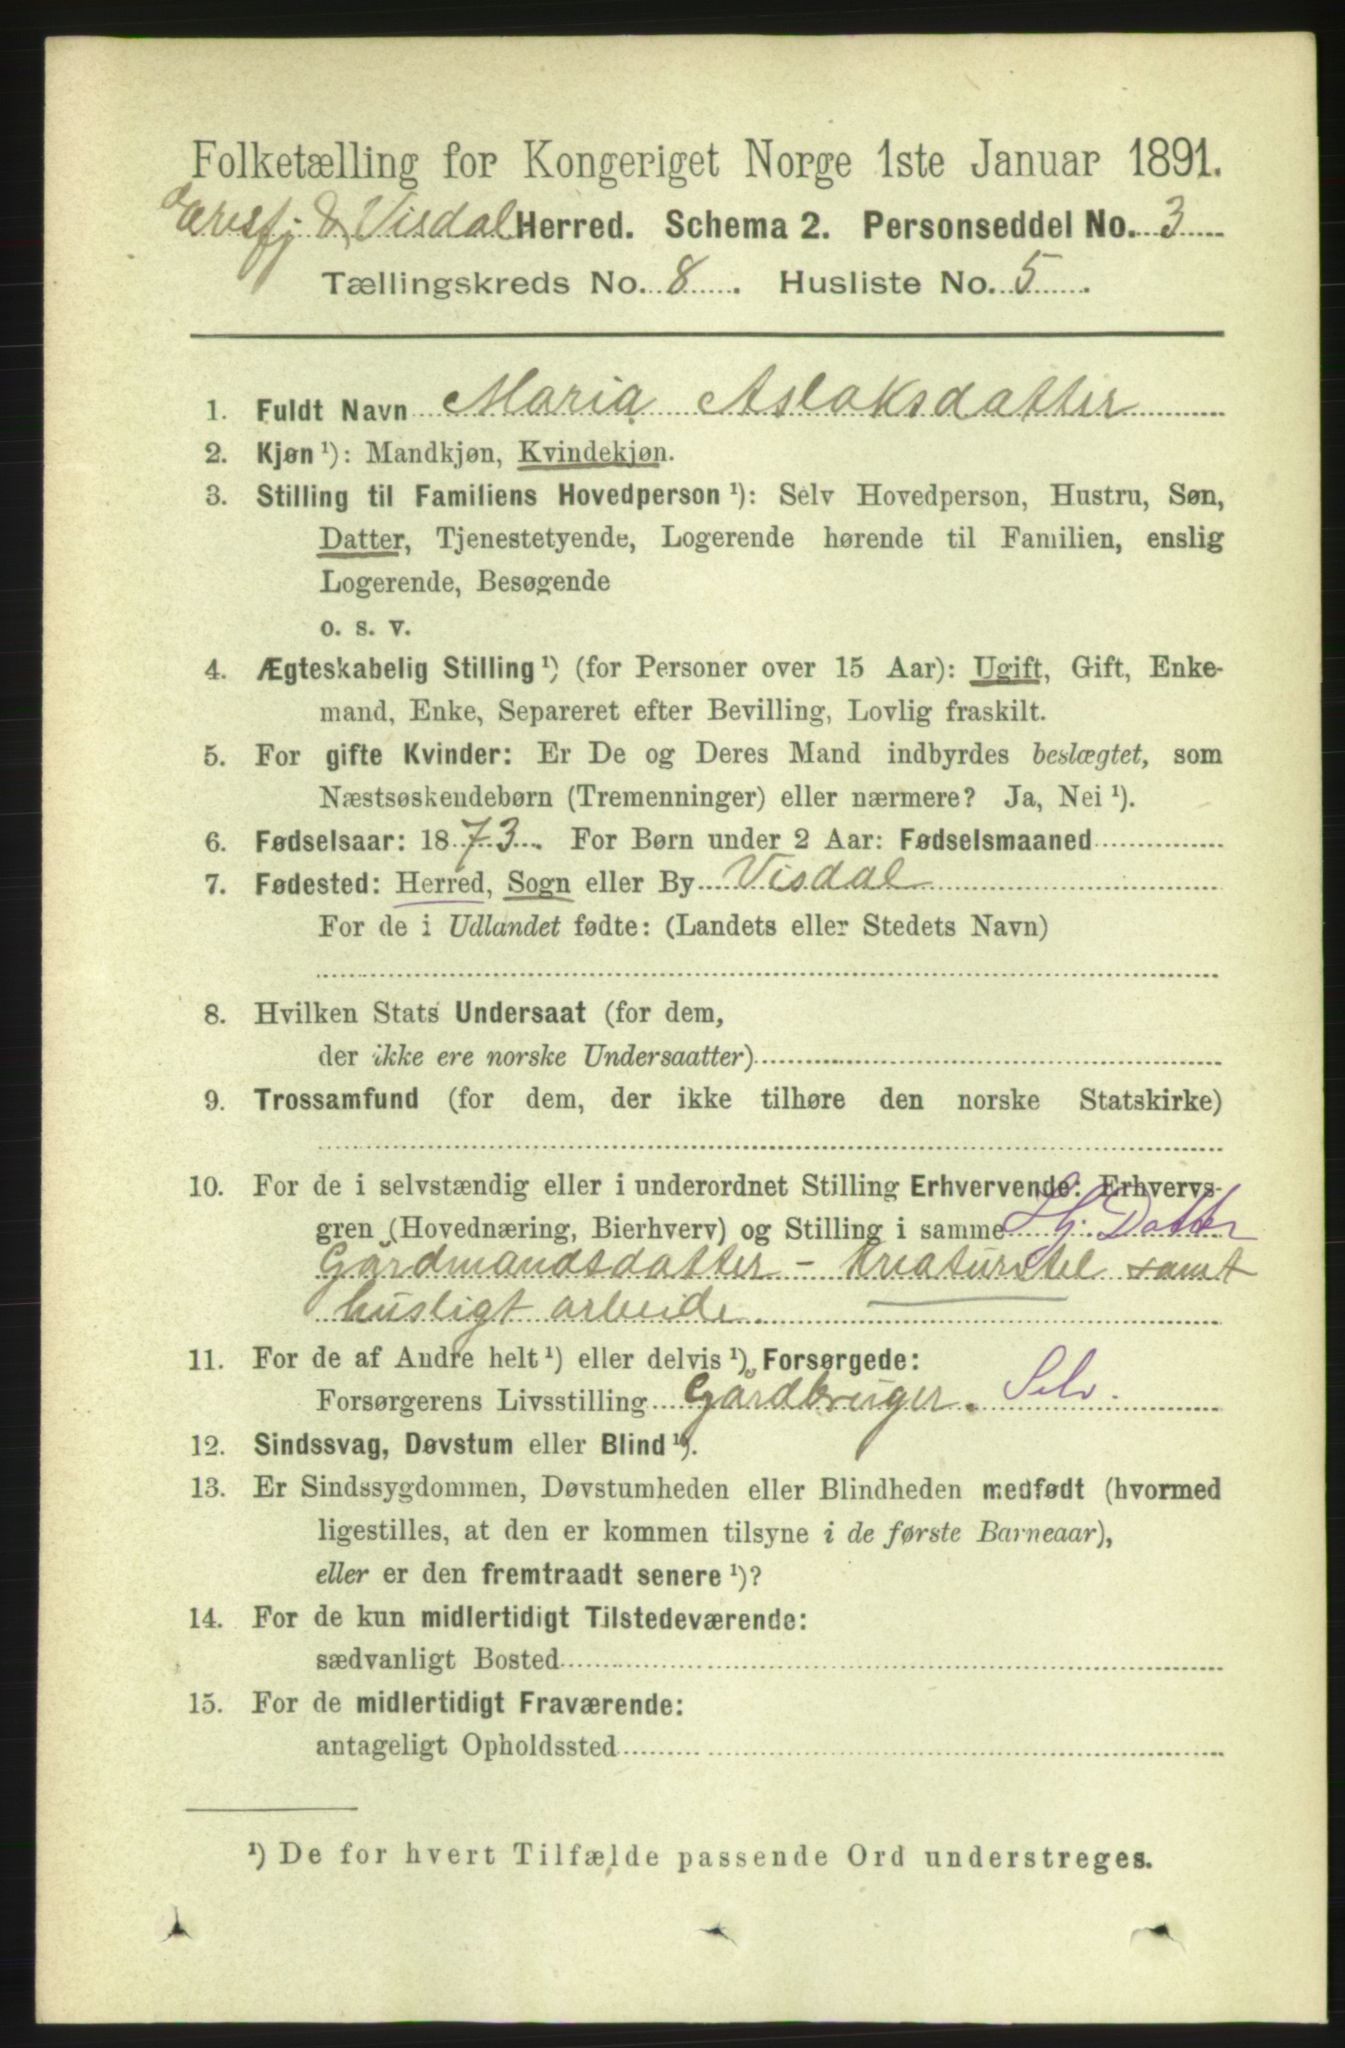 Folketælling for Kongeriget Norge 1ste Januar 1891.
Eresfj & Visdal Herred. Schema 2. Personseddel No. 3
Tællingskreds No. 8. Husliste No. 5.
1. Fuldt Navn Maria Aslaksdatter
2. Kjøn ¹): Mandkjøn, Kvindekjøn.
3. Stilling til Familiens Hovedperson ¹): Selv Hovedperson, Hustru, Søn,
Datter, Tjenestetyende, Logerende hørende til Familien, enslig
Logerende, Besøgende
o. s. v.
4. Ægteskabelig Stilling ¹) (for Personer over 15 Aar): Ugift, Gift, Enke-
mand, Enke, Separeret efter Bevilling, Lovlig fraskilt.
5. For gifte Kvinder: Er De og Deres Mand indbyrdes beslægtet, som
Næstsøskendebørn (Tremenninger) eller nærmere? Ja, Nei ¹).
6. Fødselsaar: 1873. For Børn under 2 Aar: Fødselsmaaned
7. Fødested: Herred, Sogn eller By Visdal
For de i Udlandet fødte: (Landets eller Stedets Navn)
8. Hvilken Stats Undersaat (for dem,
der ikke ere norske Undersaatter)
9. Trossamfund (for dem, der ikke tilhøre den norske Statskirke)
10. For de i selvstændig eller i underordnet Stilling Erhvervende: Erhvervs-
gren (Hovednæring, Bierhverv) og Stilling i samme Hj: Datter
Gårdmandsdatter - Kreaturstel samt
husligt arbeide.
11. For de af Andre helt ¹) eller delvis ¹) Forsørgede:
Forsørgerens Livsstilling Gårdbruger. Selv.
12. Sindssvag, Døvstum eller Blind ¹).
13. Er Sindssygdommen, Døvstumheden eller Blindheden medfødt (hvormed
ligestilles, at den er kommen tilsyne i de første Barneaar),
eller er den fremtraadt senere ¹)?
14. For de kun midlertidigt Tilstedeværende:
sædvanligt Bosted
15. For de midlertidigt Fraværende:
antageligt Opholdssted
¹) De for hvert Tilfælde passende Ord understreges.